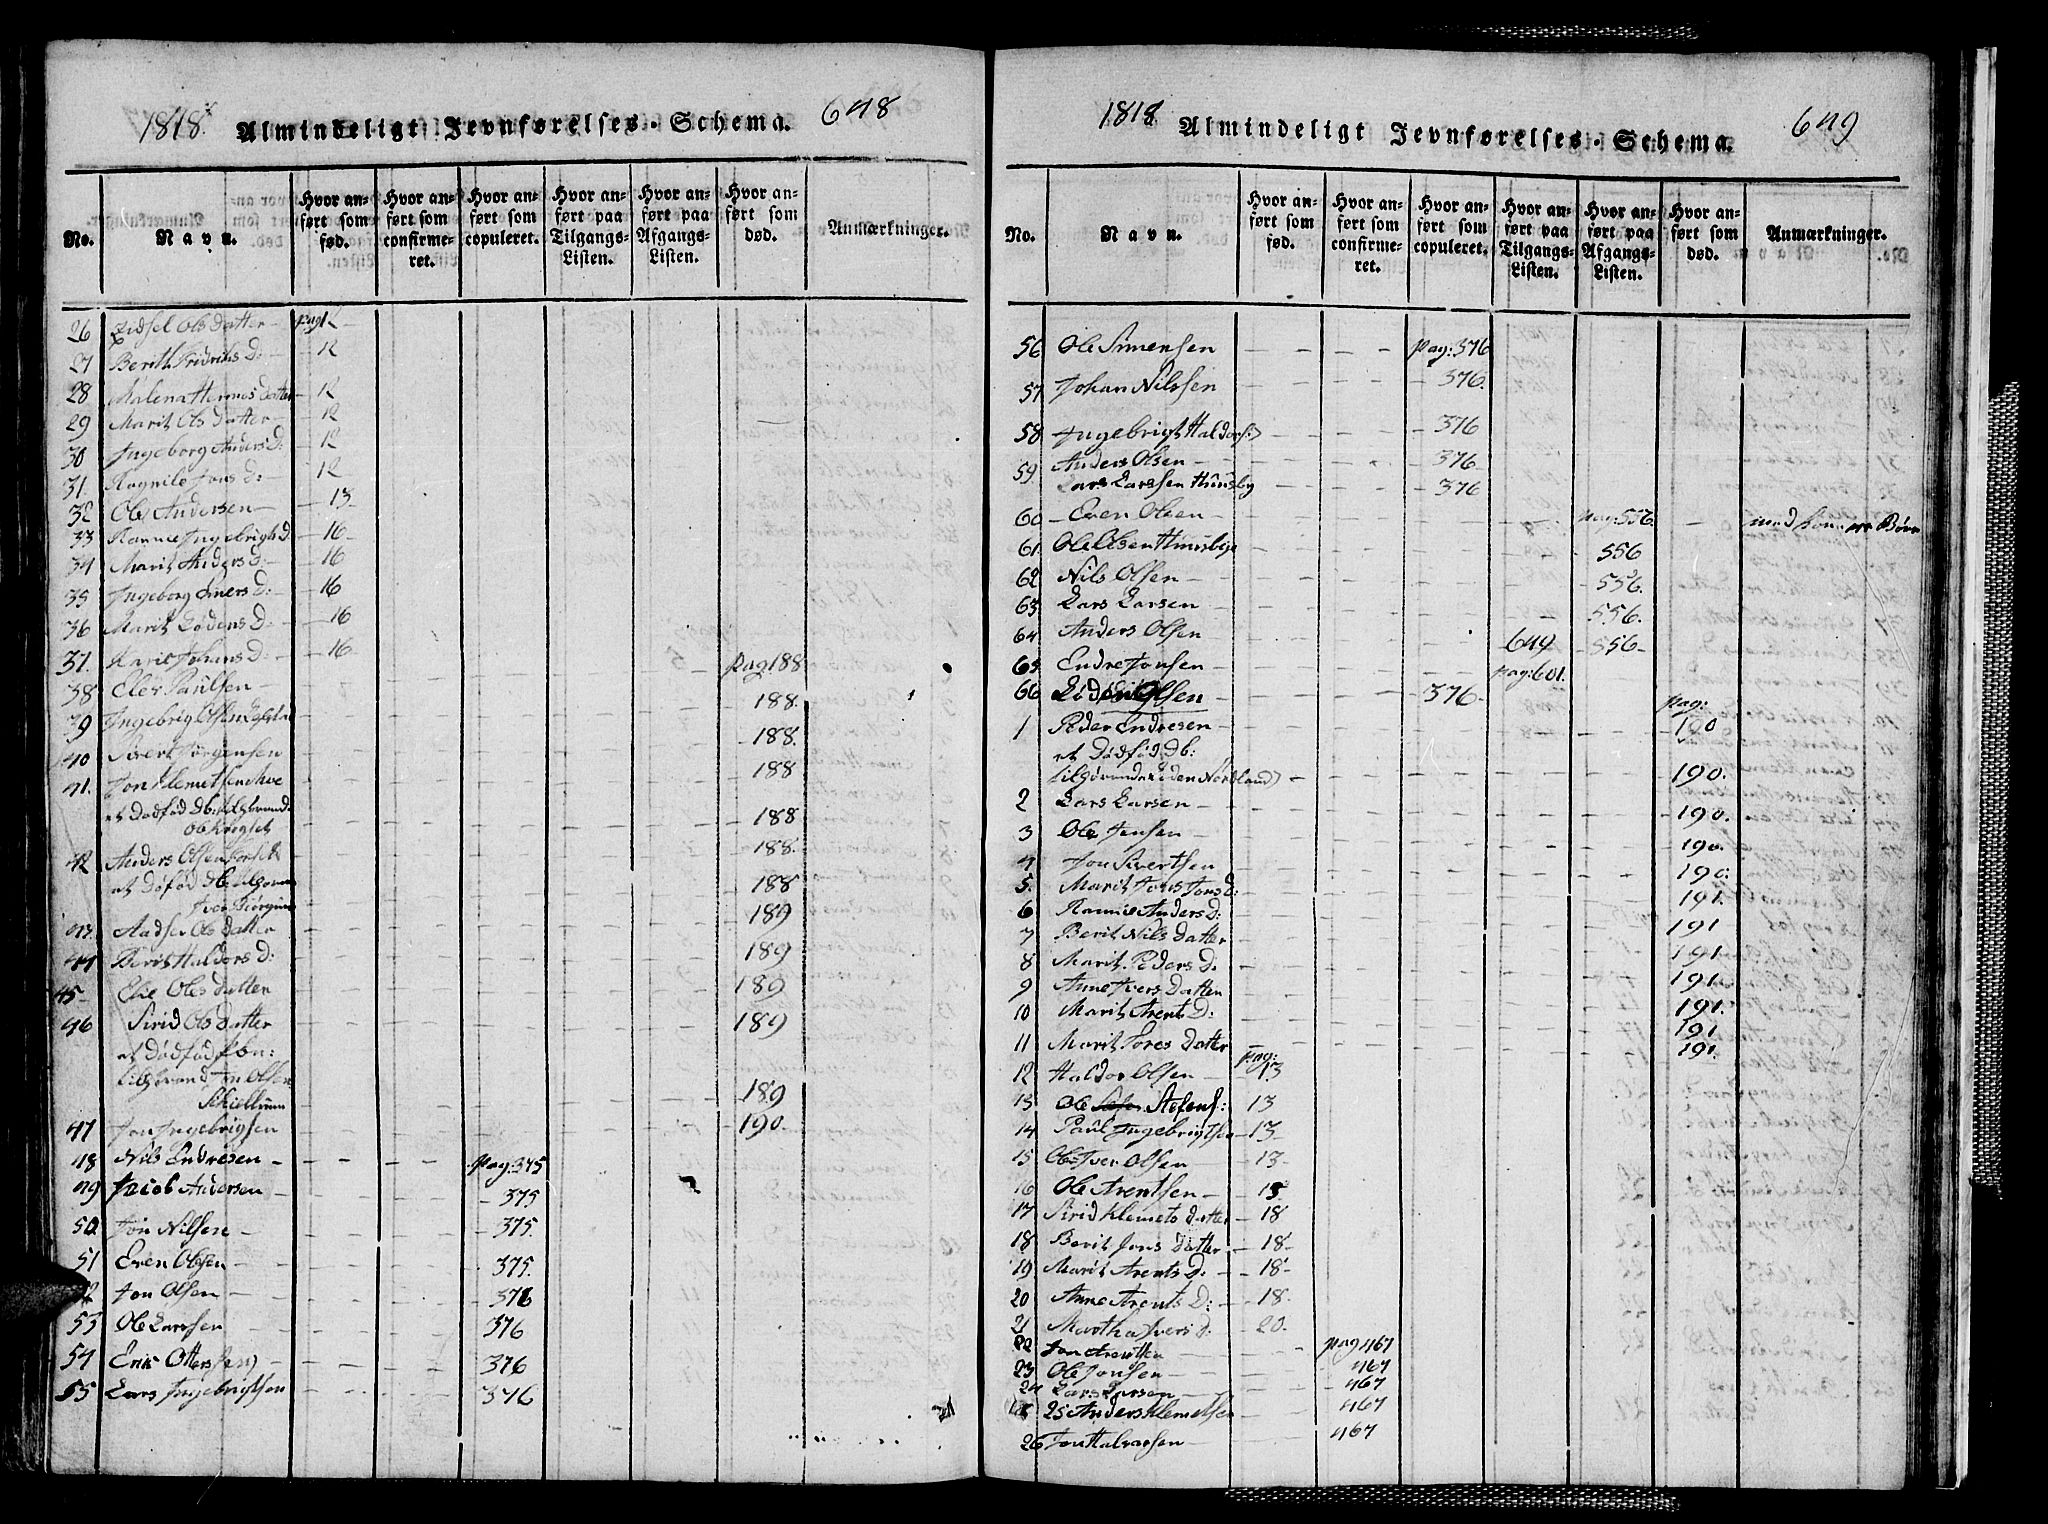 1818. Almindeligt Jevnførelses-Schema. 648
No. Navn. Hvor anført som fød. Hvor anført som confirmeret. Hvor anført som copuleret. Hvor anført paa Tilgangs-Listen. Hvor anført paa Afgangs-Listen. Hvor anført som død. Anmærkninger.
26 Zidsel Olsdatter pag 12
27 Berith Fridrichs D: 12
28 Malena Hermos datter 12
29 Marit Ols datter 12
30 Ingeborg Anders D: 12
31 Ragnile Jons d: 12
32 Ole Andersen 13
33 Rannie Ingebrigts D 16
34 Marit Anders D 16
35 Ingeborg Einers D: 16
36 Marit Lodens D: 16
37. Karie Johans D: 16
38 Eler Paulsen pag 188
39 Ingebrigt Olsen 188.
40 Sivert Jørgensen 188.
41. Jon Klemetsen 188
et Dødfød Db: 188
Ole Krogset
42 Anders Olsen 188.
et Døfød Db 188
43. Aadser Ols datter 189
44 Berit Haldors D: 189
45 Elie Oles datter 189
46 Sirid Ols datter 189
et Dødfød
Jon Olsen
Skiellum 189
47 Jon Ingebrigtsen 190.
48 Nils Endresen pag: 375
49 Jacob Andersen 375
50 Jon Nilsen 375.
51 Even Olsen 375.
52 Jon Olsen 376
53 Ole Larssen 376
54 Erik Ottersen 376
55 Lars Ingebrigtsen 376
1818 Almindeligt Jevnførelses-Schema. 649
No. Navn. Hvor anført som fød. Hvor anført som confirmeret. Hvor anført som copuleret. Hvor anført paa Tilgangs-Listen. Hvor anført paa Afgangs-Listen. Hvor anført som død. Anmærkninger.
56 Ole Simensen pag: 376
57 Johan Nilssen 376.
58 Ingebrigt Haldors: 376
59 Anders Olsen 376
Lars Larssen 376
60 Even Olsen pag: 556. med Kone og Børn
61. Ole Olsen 556
62 Nils Olsen 556.
63 Lars Larsen 556.
64 Anders Olsen 649 556
65 Endre Jonsen pag: 601.
66 Loden Olsen 376 pag:
1 Peder Endresen 190
et Dødfød Db:
190.
2 Lars Larsen 190.
3 Ole Jensen 190.
4 Jon Sivertsen 190.
5. Marit Jons Jons D: 191.
6 Rannie Anders D: 191
7 Berit Nils Datter 191
8 Marit Peders D: 191
9 Anne Ivers Datter 191.
10 Marit Arents D: 191
11 Marit Tores Datter 191.
12 Haldor Olsen pag: 13
13 Ole Stefens: 13
14 Paul Ingebrigtsen 13
15 Ole Iver Olsen 13
16 Ole Arentsen 13
17 Sirid Klemets datter 18
18 Berit Jons Datter 18
19 Marit Arents D: 18
20 Anne Arents D: 18.
21 Martha Ivers d: 20.
22 Jon Arentsen pag 467
23 Ole Jonsen 467
24 Lars Larsen 467
25 Anders Klemetsen 467
26 Jon Halvorsen 467